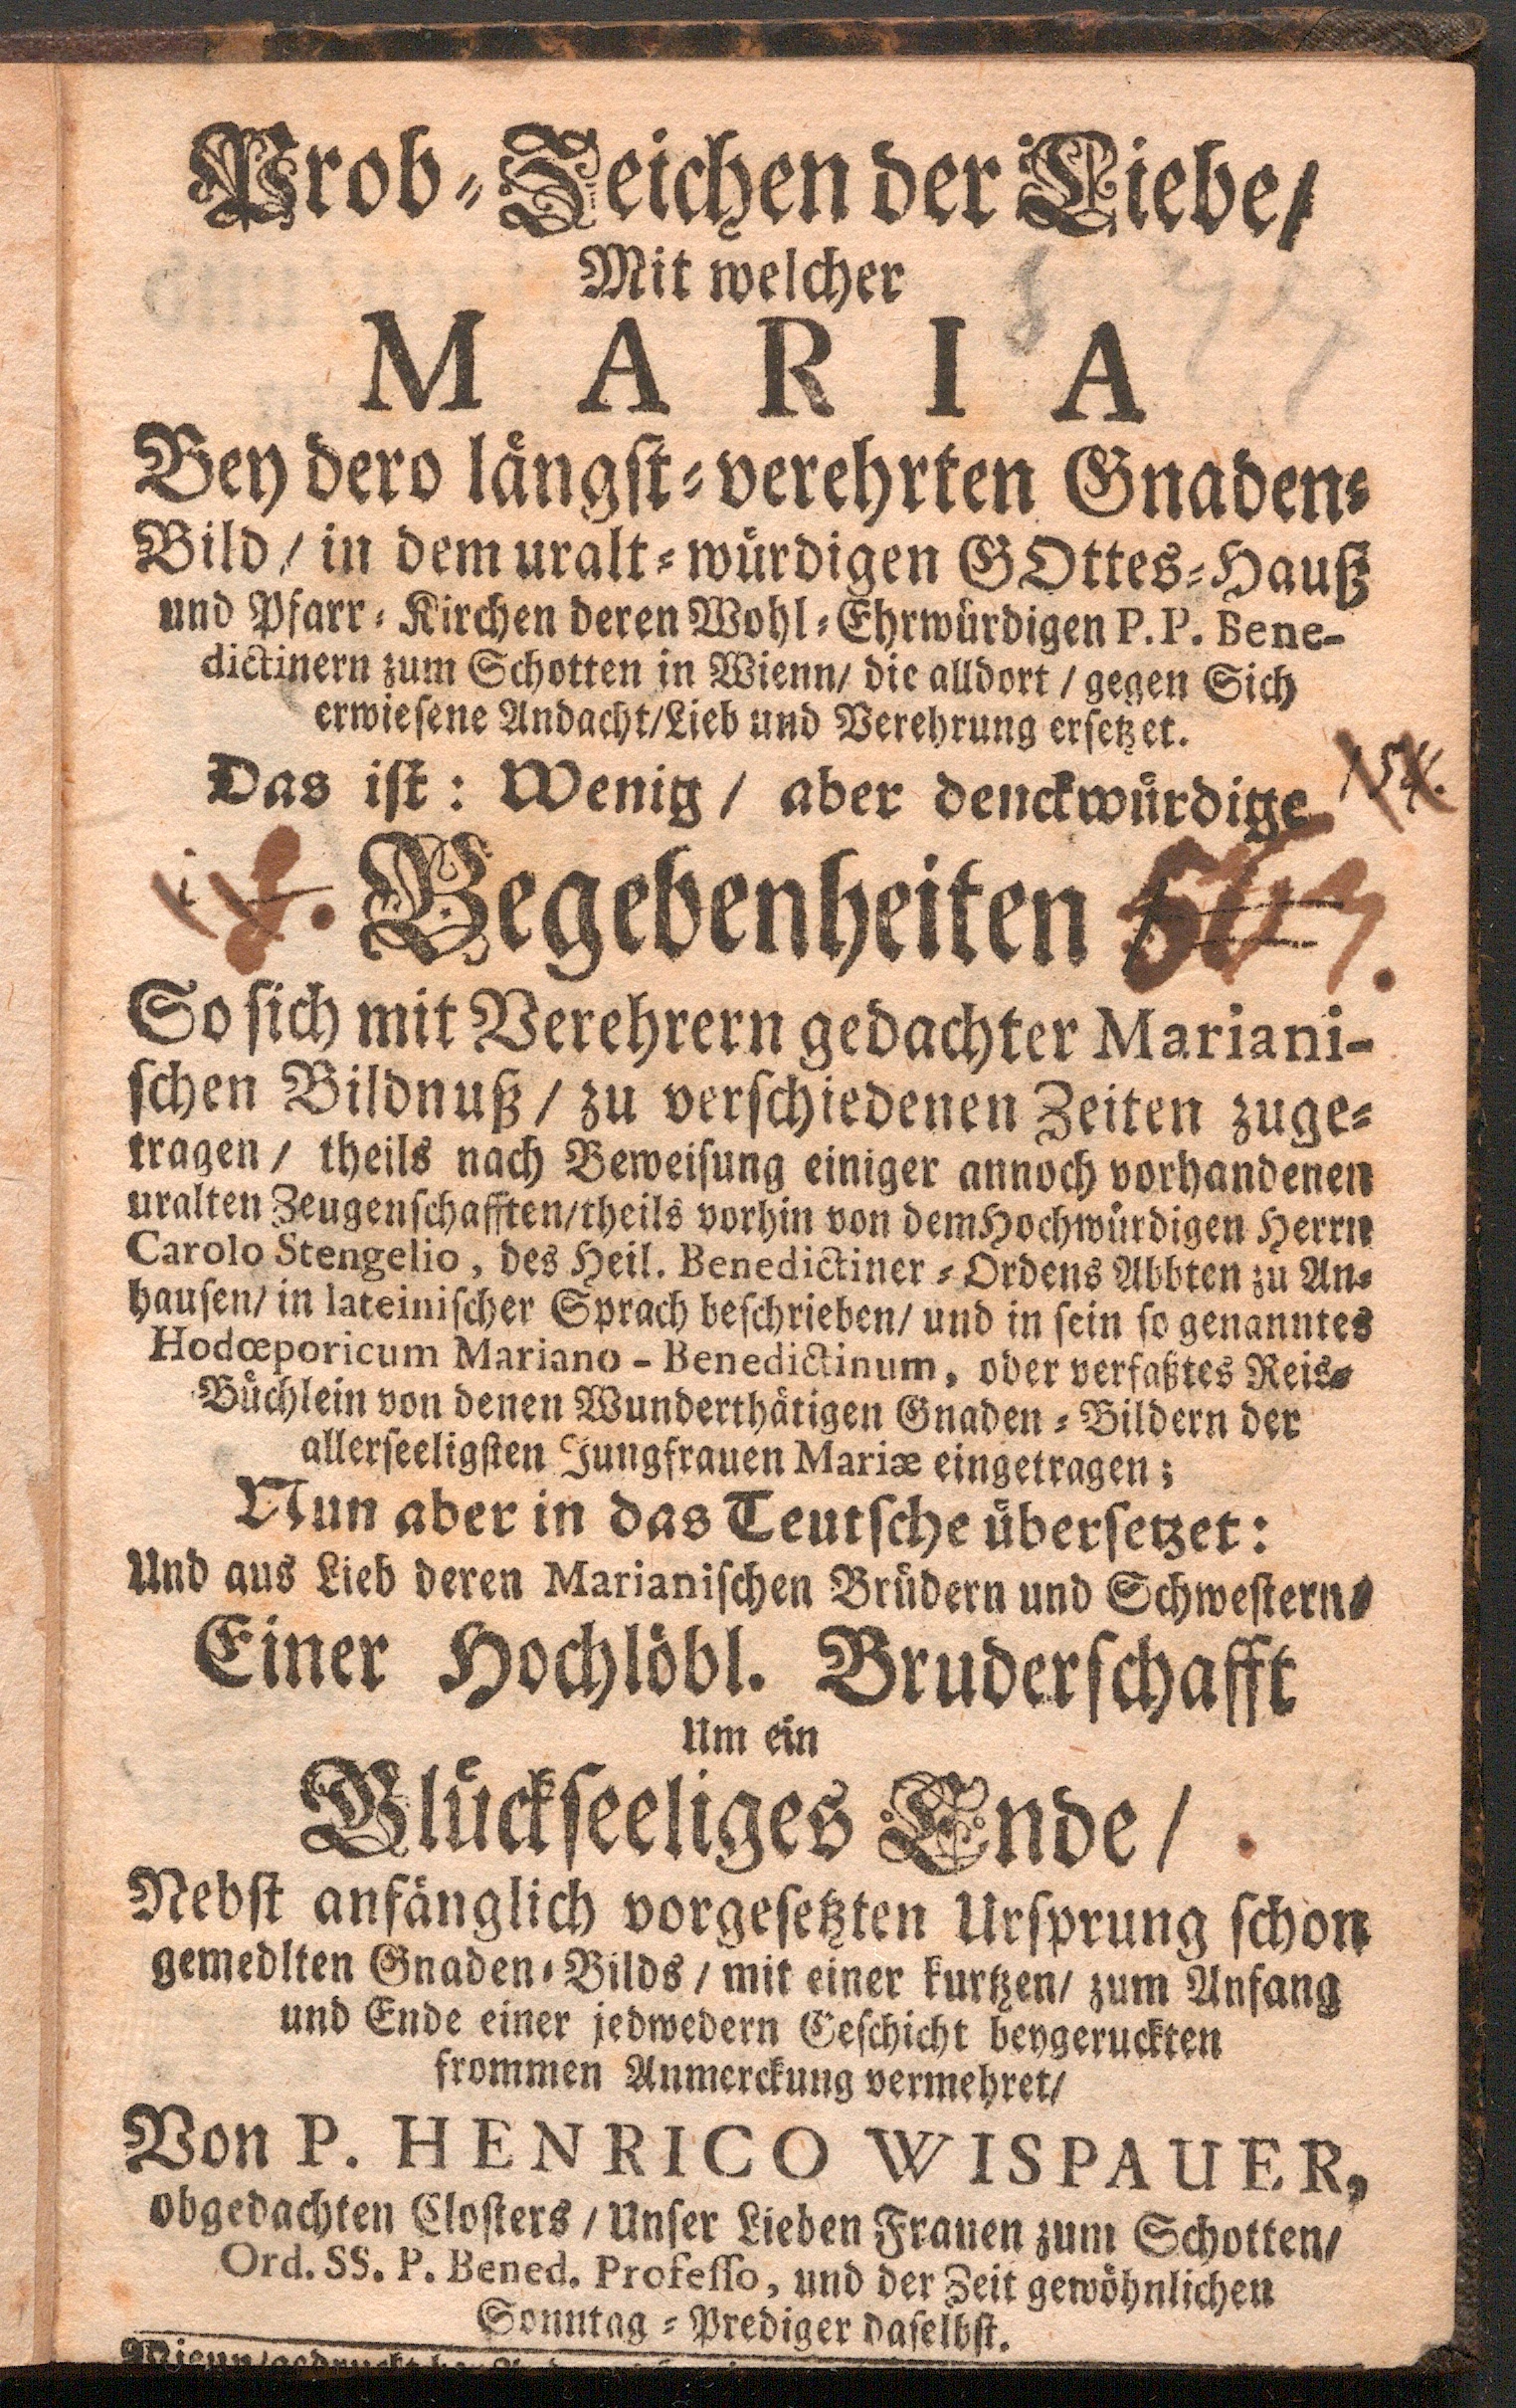 Prob-Zeichen der Liebe/
Mit welcher
MARIA
Bey dero längst-verehrten Gnaden-
Bild / in dem uralt-würdigen GOttes-Hauß
und Pfarr-Kirchen deren Wohl-Ehrwürdigen P. P. Bene-
dictinern zum Schotten in Wienn/ die alldort / gegen Sich
erwiesene Andacht/Lieb und Verehrung ersetzet.
Das ist: Wenig / aber denckwürdige
Begebenheiten /
So sich mit Verehrern gedachter Mariani-
schen Bildnuß / zu verschiedenen Zeiten zuge-
tragen / theils nach Beweisung einiger annoch vorhandenen
uralten Zeugenschafften/theils vorhin von dem Hochwürdigen Herrn
Carolo Stengelio, des Heil. Benedictiner-Ordens Abbten zu An-
hausen/ in lateinischer Sprach beschrieben/ und in sein so genanntes
Hodœporicum Mariano-Benedictinum, oder verfaßtes Reis-
Büchlein von denen Wunderthätigen Gnaden-Bildern der
allerseeligsten Jungfrauen Mariæ eingetragen;
Nun aber in das Teutsche übersetzet:
Und aus Lieb deren Marianischen Brüdern und Schwestern/
Einer Hochlöbl. Bruderschafft
Um ein
Glückseeliges Ende /
Nebst anfänglich vorgesetzten Ursprung schon
gemedlten Gnaden-Bilds / mit einer kurtzen/ zum Anfang
und Ende einer jedwedern Geschicht beygeruckten
frommen Anmerckung vermehret/
Von P. HENRICO WISPAUER,
obgedachten Closters / Unser Lieben Frauen zum Schotten/
Ord. SS. P. Bened. Professo, und der Zeit gewöhnlichen
Sonntag-Prediger daselbst.
Wienn/gedruckt